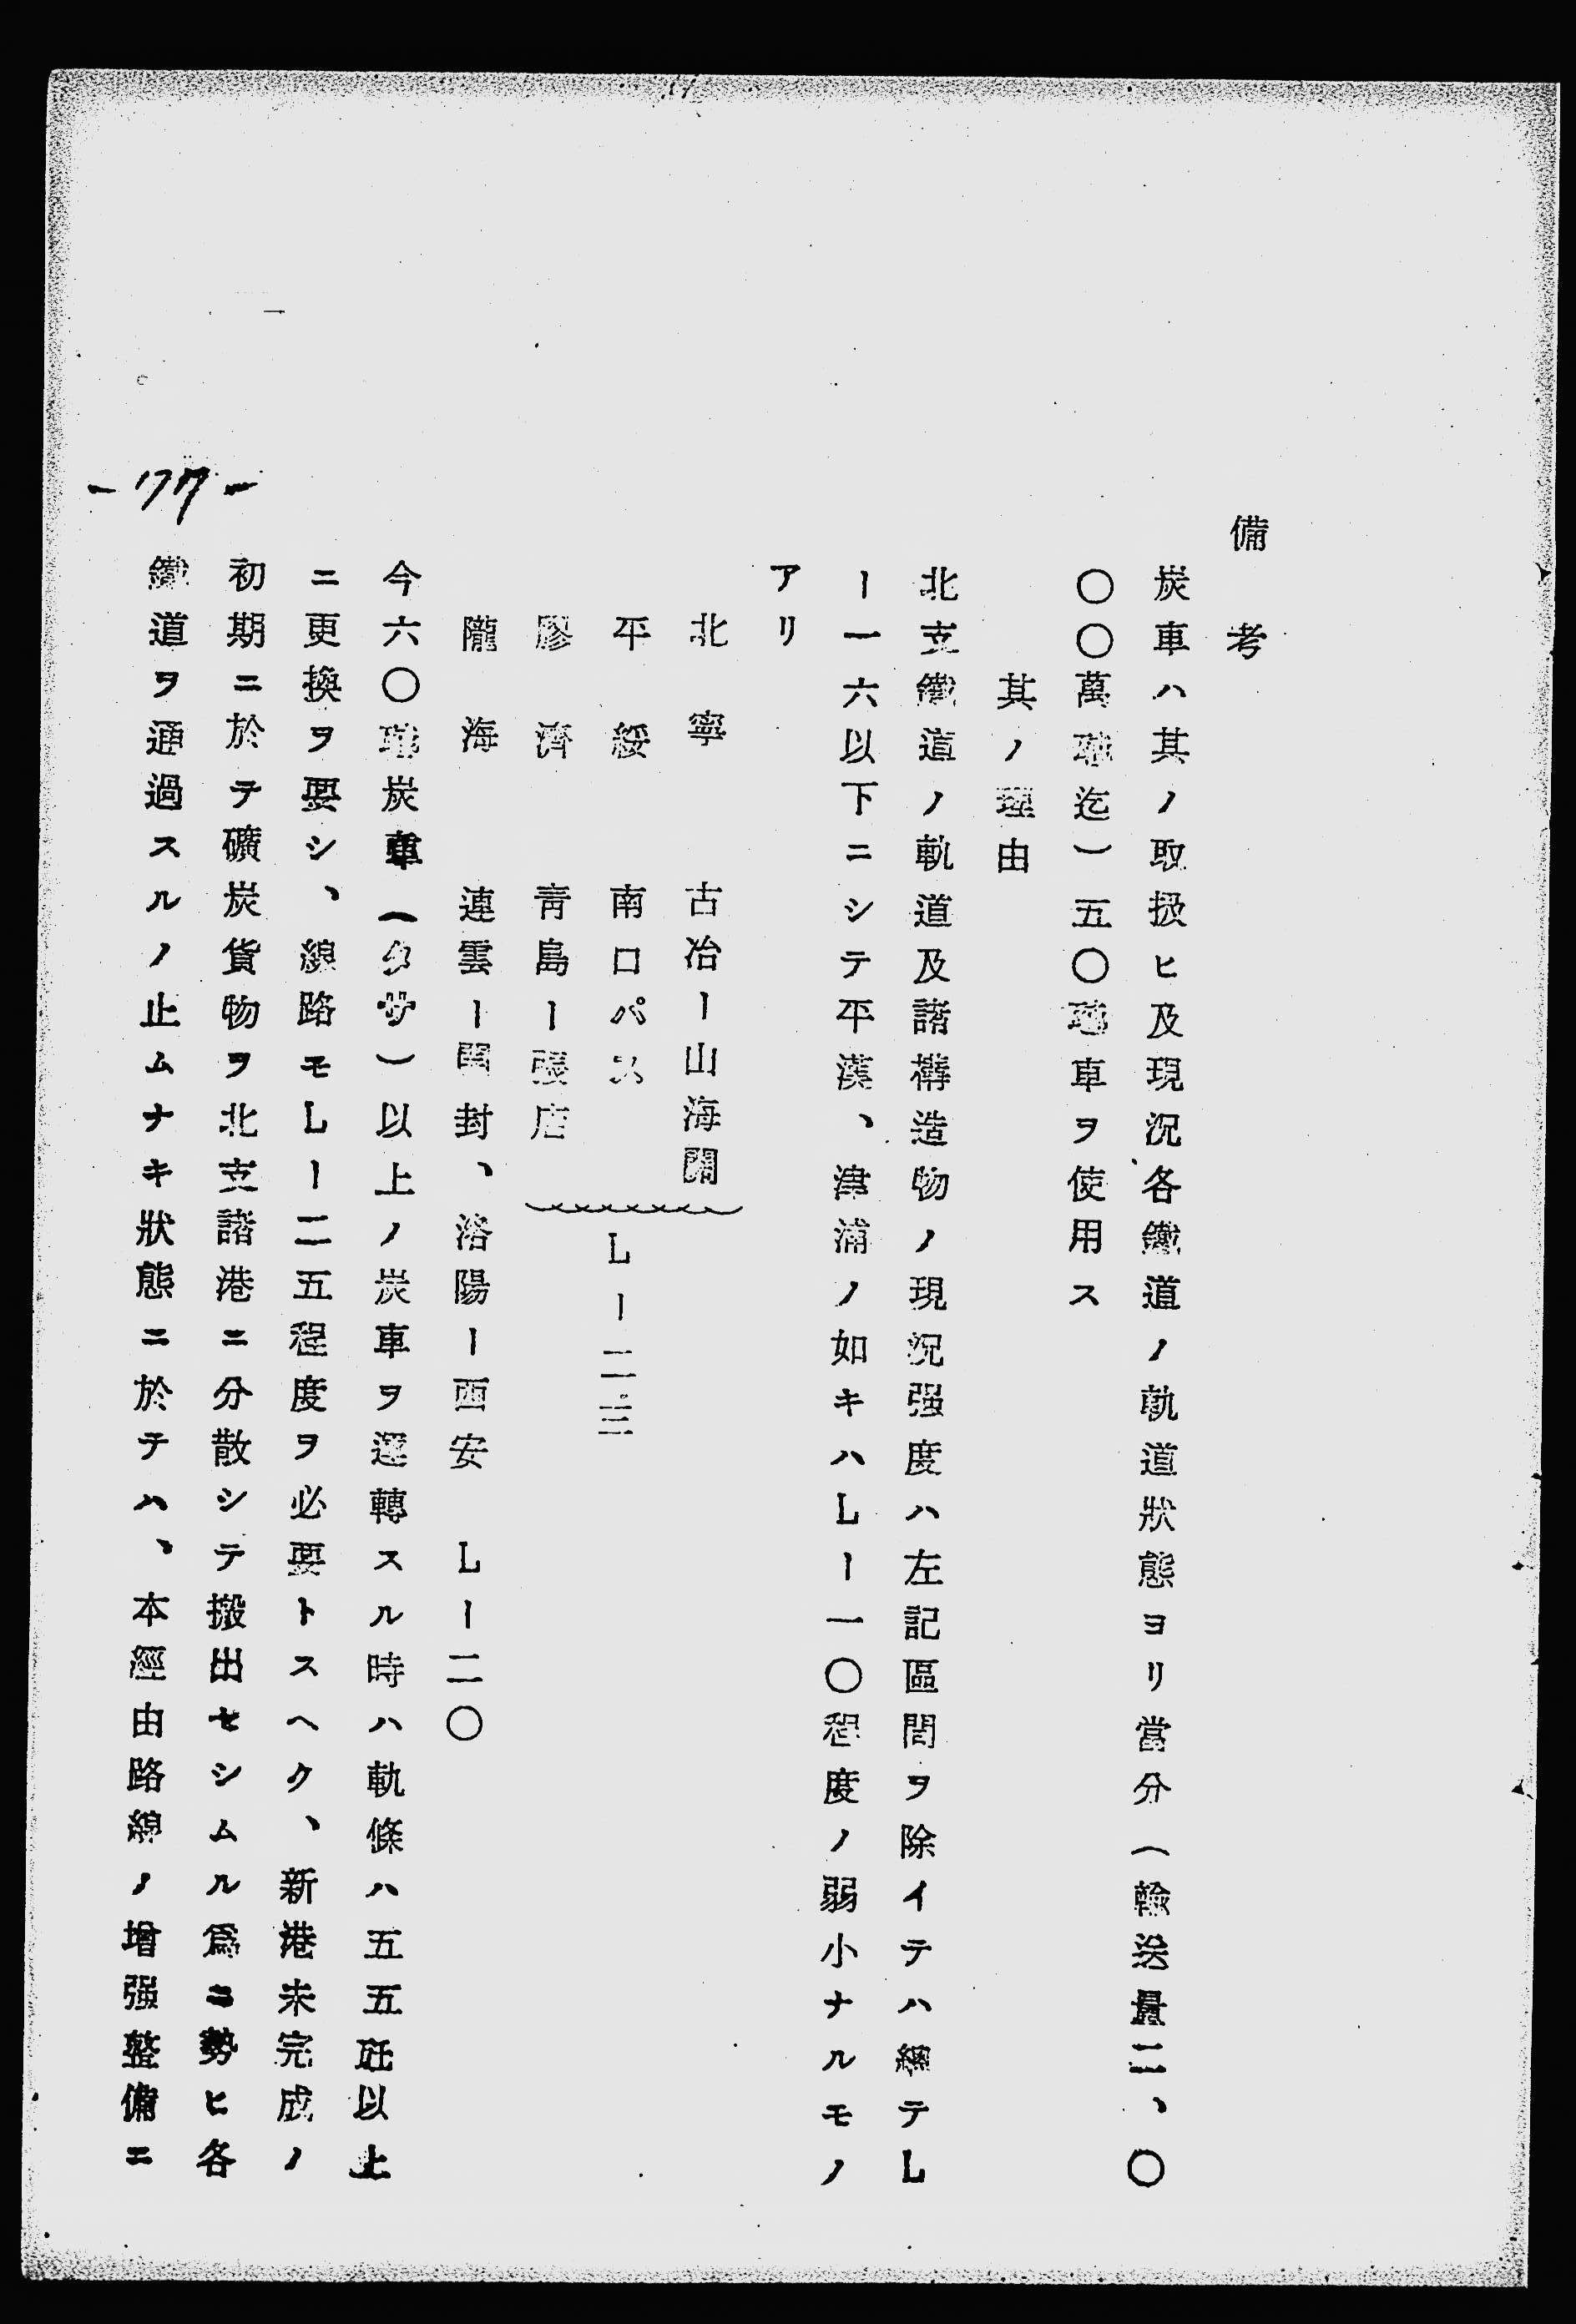 備考
炭車ハ其ノ取扱ヒ及現況各鐵道ノ軌道狀態ヨリ當分（輸送量二、〇
〇〇萬瓲迄）五〇瓲車ヲ使用ス
其ノ理由
北支鐵道ノ軌道及諸構造物ノ現況强度ハ左記區間ヲ除イテハ總テL
ー一六以下ニシテ平漢、津浦ノ如キハLー一〇程度ノ弱小ナルモノ
アリ
北寧　古冶ー山海關
平綏　南口パス
膠濟　靑島ー張店
Lー二三
隴海　連雲ー開封、洛陽ー西安　Lー二〇
今六〇瓲炭車（タサ）以上ノ炭車ヲ運轉スル時ハ軌條ハ五五瓩以上
ニ更換ヲ要シ、線路モLー二五程度ヲ必要トスヘク、新港未完成ノ
初期ニ於テ礦炭貨物ヲ北支諸港ニ分散シテ搬出セシムル爲ニ勢ヒ各
鐵道ヲ通過スルノ止ムナキ狀態ニ於テハ、本經由路線ノ增强整備ニ
-177-